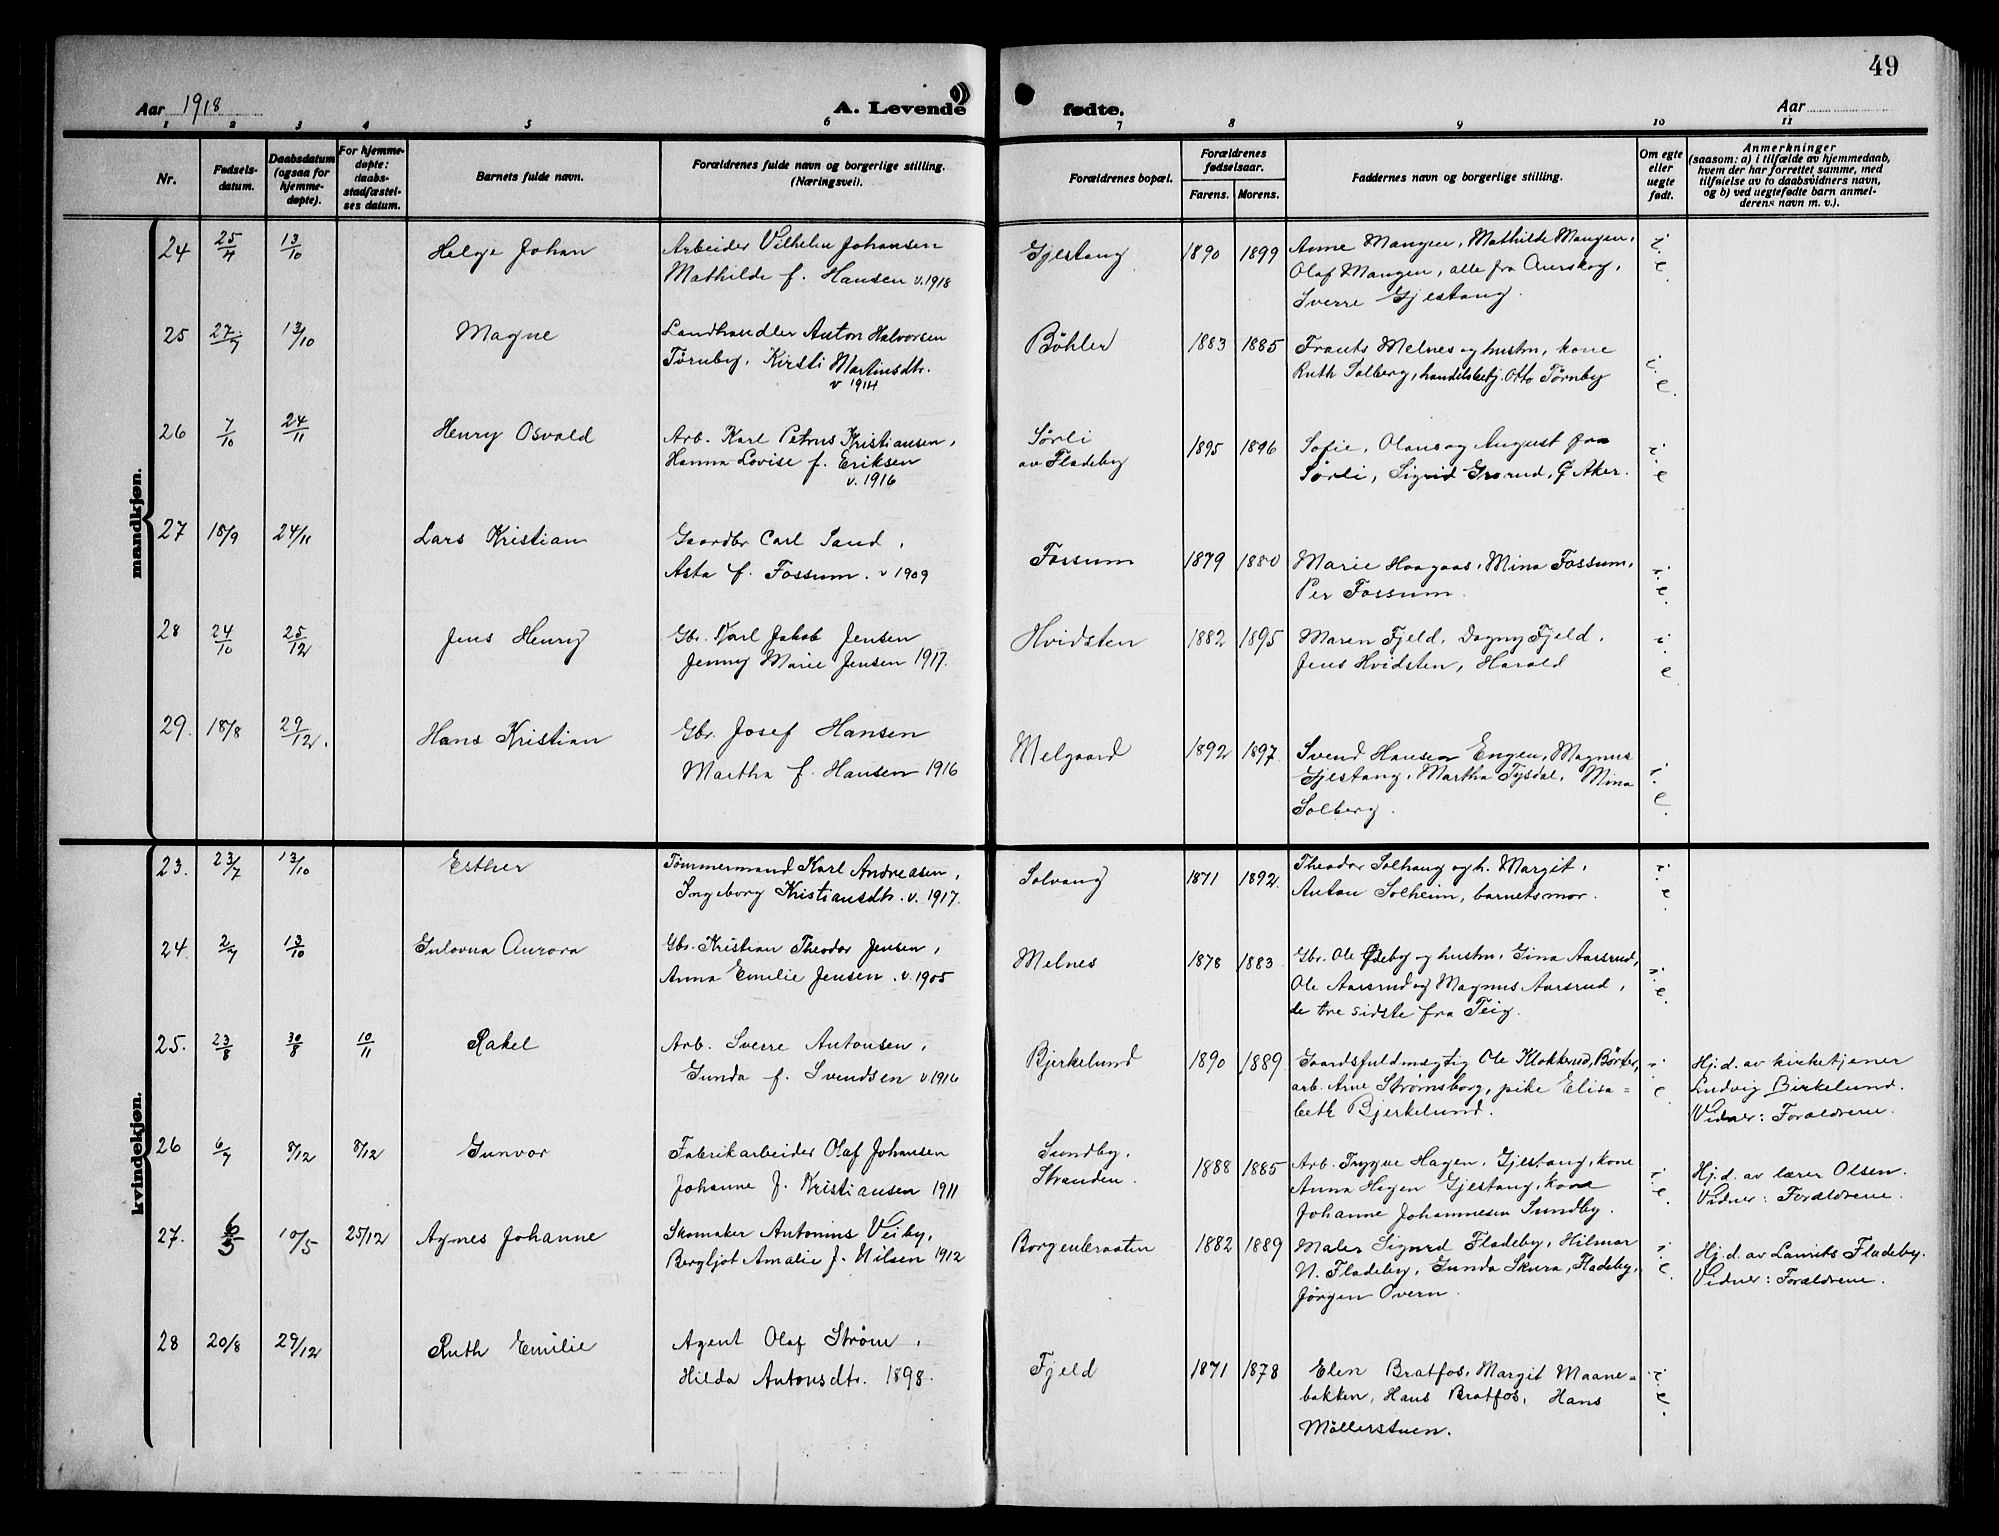 49
Aar 1918
A. Levende fødte.
Aar
1 2 3 4 5 6 7 8 9 10 11
Nr.
Fødsels-
datum.
Daabsdatum
(ogsaa for
hjemme-
døpte).
For hjemme-
døpte:
daabs-
stadfæstel-
ses datum.
Barnets fulde navn.
Forældrenes fulde navn og borgerlige stilling.
(Næringsvei).
Forældrenes bopæl.
Forældrenes
fødselsaar.
Farens. Morens.
Faddernes navn og borgerlige stilling.
Om egte
eller
uegte
født.
Anmerkninger
(saasom: a) i tilfælde av hjemmedaab,
hvem der har forrettet samme, med
tilføielse av to daabsvidners navn,
og b) ved uegtefødte barn anmel-
derens navn m. v.).
mandkjøn.
24 25/4 13/10 Helge Johan
Arbeider Vilhelm Johansen
Mathilde f. Hansen v. 1918
Gjestang 1890 1899
Anne Mangen, Mathilde Mangen,
Olaf Mangen, alle fra Aurskog,
Sverre Gjestang.
i. e.
25 27/7 13/10 Magne
Landhandler Anton Halvorsen
Tørnby, Kirsti Martinsdtr.
v 1914
Bøhler 1883 1885
Frants Melnes og hustru, kone
Ruth Solberg, handelsbetj. Otto Tørnby
i. e.
26 7/10 24/11 Henry Osvald
Arb. Karl Petrus Kristiansen,
Hanna Lovise f. Eriksen
v. 1916
Sørli
av Fladeby
1895 1896
Sofie, Olaus og August fra
Sørli, Sigrid Grorud, Ø Aker.
i. e
27 18/9 24/11 Lars Kristian
Gaardbr Carl Sand,
Asta f. Fossum. v 1909
Fossum 1879 1880
Marie Haagaas, Mina Fossum,
Per Fossum.
i. e.
28 24/10 25/12 Jens Henry
Gbr. Karl Jakob Jensen
Jenny Marie Jensen 1917.
Hvidsten 1882 1895
Maren Fjeld, Dagny Fjeld,
Jens Hvidsten, Harald
i e
29. 18/8 29/12. Hans Kristian
Gbr. Josef Hansen
Martha f. Hansen 1916
Melgaard 1892 1897
Svend Hansen Engen, Magnus
Gjestang, Martha Tysdal, Mina
Solberg.
i. e.
kvindekjøn.
23. 23/7 13/10 Esther
Tømmermand Karl Andreasen,
Ingeborg Kristiansdtr. v. 1917.
Solvang 1871 1892.
Theodor Solhaug og h. Margit,
Anton Solheim, barnets mor.
i. e.
24. 2/7 13/10 Gulovna Aurora
Gbr. Kristian Theodor Jensen,
Anna Emilie Jensen. v. 1905
Melnes 1878 1883
Gbr. Ole Ødeby og hustru, Gina Aarsrud,
Ole Aarsrud og Magnus Aarsrud,
de tre sidste fra Teig.
i. e.
25. 23/8 30/8 10/11 Rakel
Arb. Sverre Antonsen,
Gunda f. Svendsen v. 1916
Bjerkelund 1890 1889
Gaardsfuldmægtig Ole Klokkerud, Børter,
arb. Arne Strømsborg, pike Elisa=
beth Bjerkelund.
i. e
Hj. d. av kirketjener
Ludvig Birkelund.
Vidner: Forældrene.
26 6/7 8/12 8/12 Gunvor
Fabrikarbeider Olaf Johansen
Johanne f. Kristiansen 1911
Sundby,
Stranden.
1888 1885
Arb. Trygve Hagen, Gjestang, kone
Anna Hagen Gjestang, kone
Johanne Johannesen Sundby.
i. e.
Hj. d. av lærer Olsen.
Vidner: Forældrene.
27. 6/5 10/5 25/12 Agnes Johanne
Skomaker Antonius Veiby,
Bergljot Amalie f. Nilsen 1912
Borgenbraaten 1882 1889
Maler Sigurd Fladeby, Hilmar
N. Fladeby, Gunda Skura, Fladeby,
Jørgen Overn.
i. e.
Hj. d. av Laurits Fladeby.
Vidner: Forældrene.
28 20/8 29/12 Ruth Emilie
Agent Olaf Strøm,
Hilda Antonsdtr. 1898.
Fjeld 1871 1878
Elen Bratfos, Margit Maane=
bakken, Hans Bratfos, Hans
Møllerstuen.
i. e.